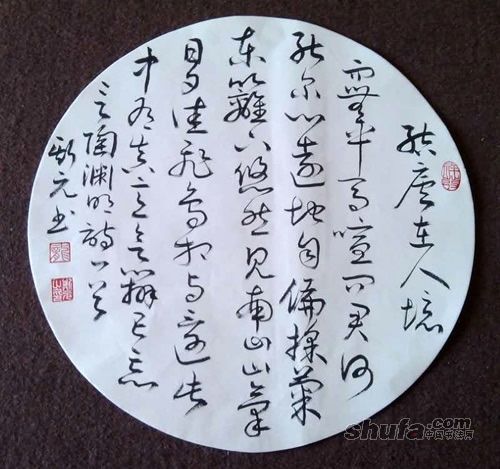 結廬在人境
而無車馬喧问君何
能尔心遠地自偏採菊
東籬下悠然見南山山氣
日夕佳飛鳥相与還此
中有真意欲辨已忘
言陶渊明詩一首
元书
shufa.com
中国书法网